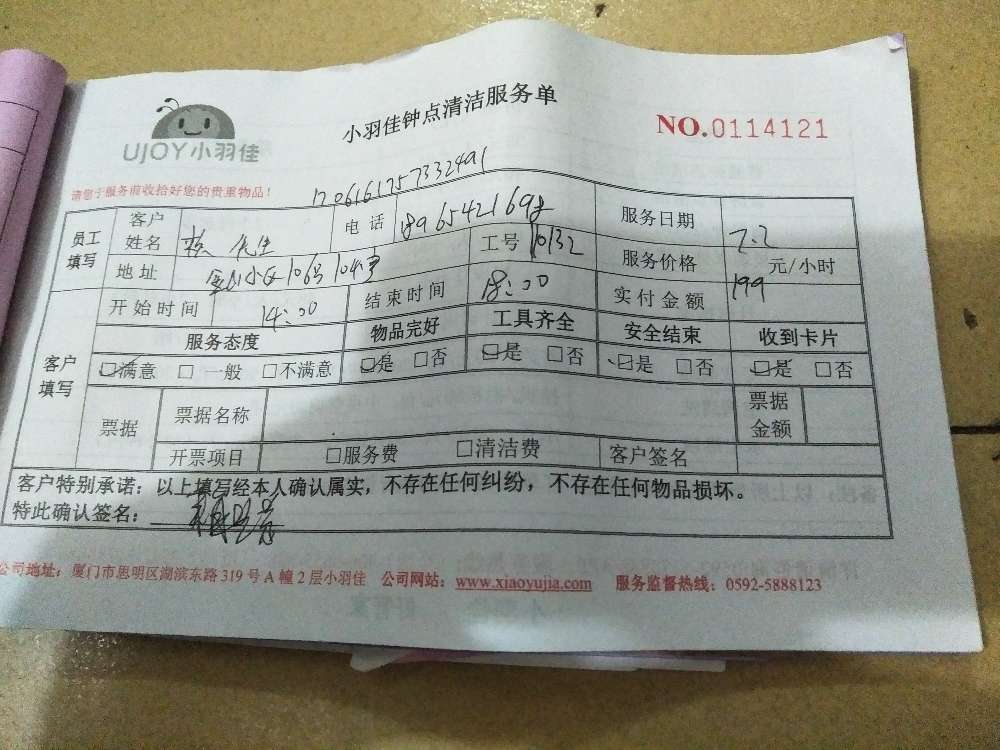 UJOY小羽佳
小羽佳钟点清洁服务单
NO.0114121
请您于服务前收拾好您的贵重物品!
员工填写
客户姓名 先生 电话 服务日期 7.2
地址 工号 10132 服务价格 元/小时
客户填写
开始时间 14:00 结束时间 18:00 实付金额 199
服务态度 物品完好 工具齐全 安全结束 收到卡片
☑满意 □一般 □不满意 ☑是 □否 ☑是 □否 ☑是 □否 ☑是 □否
票据 票据名称 票据金额
开票项目 □服务费 □清洁费 客户签名
客户特别承诺:以上填写经本人确认属实,不存在任何纠纷,不存在任何物品损坏。
特此确认签名:
公司地址:厦门市思明区湖滨东路319号A幢2层小羽佳 公司网站:www.xiaoyujia.com 服务监督热线:0592-5888123